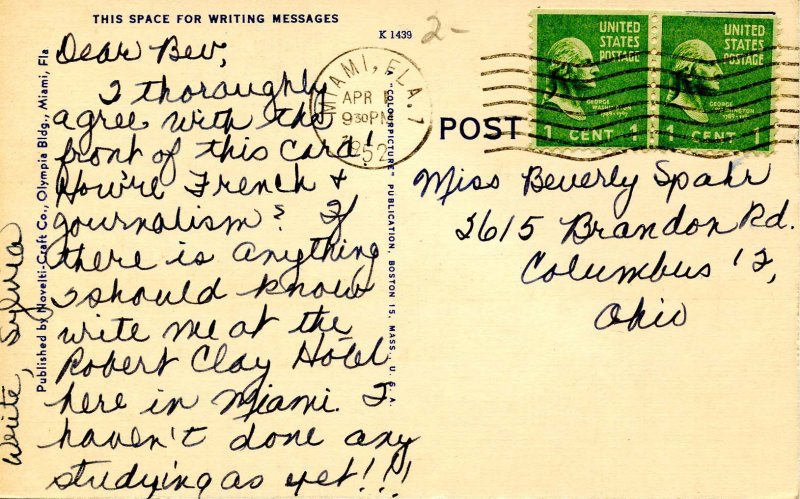 THIS SPACE FOR WRITING MESSAGES
K 1439
2-
Dear Bev,
I thoroughly
agree with the
front of this card!
How're French &
journalism? If
there is anything
I should know
write me at the
Robert Clay Hotel
here in Miami. I
haven't done any
studying as yet!!!
Write, Sylvia
Published by Novelti-Craft Co., Olympia Bldg., Miami, Fla
"COLOURPICTURE" PUBLICATION, BOSTON 15, MASS., U.S.A.
MIAMI, FLA. 7
APR
9 30 PM
1952
POST
UNITED
STATES
POSTAGE
GEORGE
WASHINGTON
1 CENT 1
UNITED
STATES
POSTAGE
GEORGE
1 CENT 1
Miss Beverly Spahr
2615 Brandon Rd.
Columbus 12,
Ohio